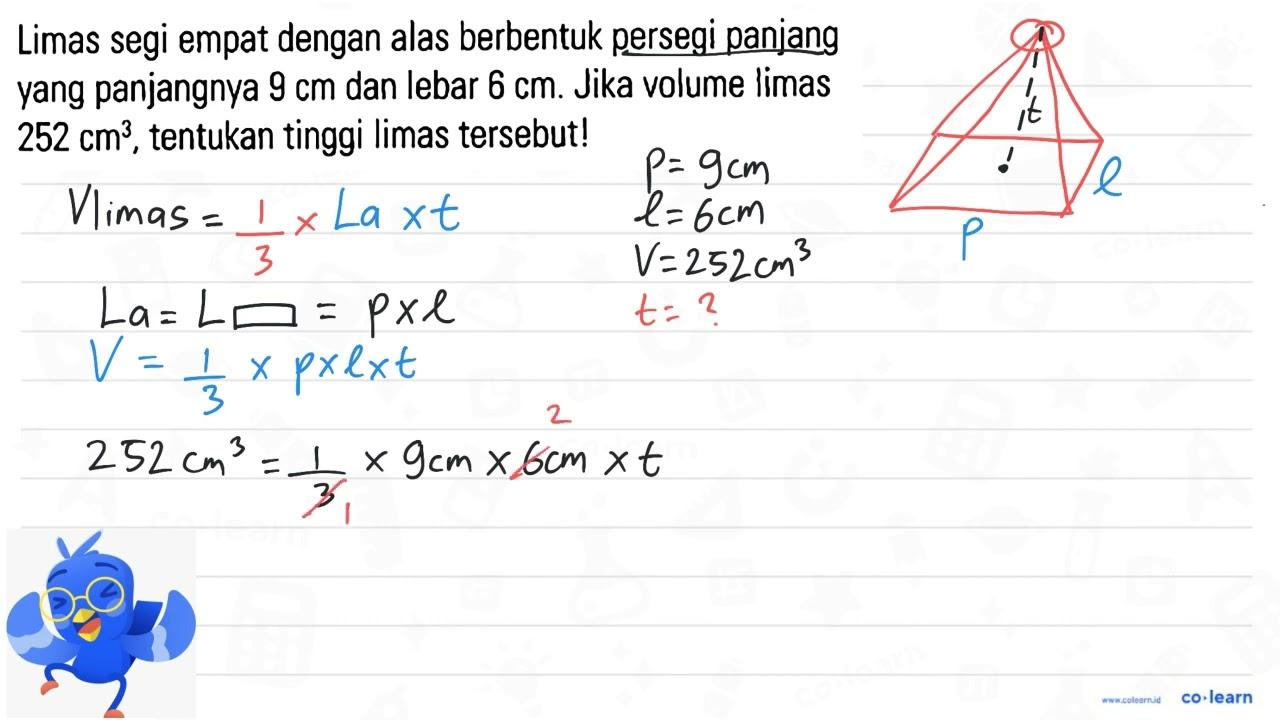 Limas segi empat dengan alas berbentuk persegi panjang
yang panjangnya 9 cm dan lebar 6 cm. Jika volume limas
252 cm³, tentukan tinggi limas tersebut!
t
l
p
p = 9cm
l = 6cm
V = 252cm³
t = ?
Vlimas = 1/3 × La × t
La = L▭ = p×l
V = 1/3 × p×l×t
2
252 cm³ = 1/3 × 9cm × 6cm × t
1
www.colearn.id co·learn